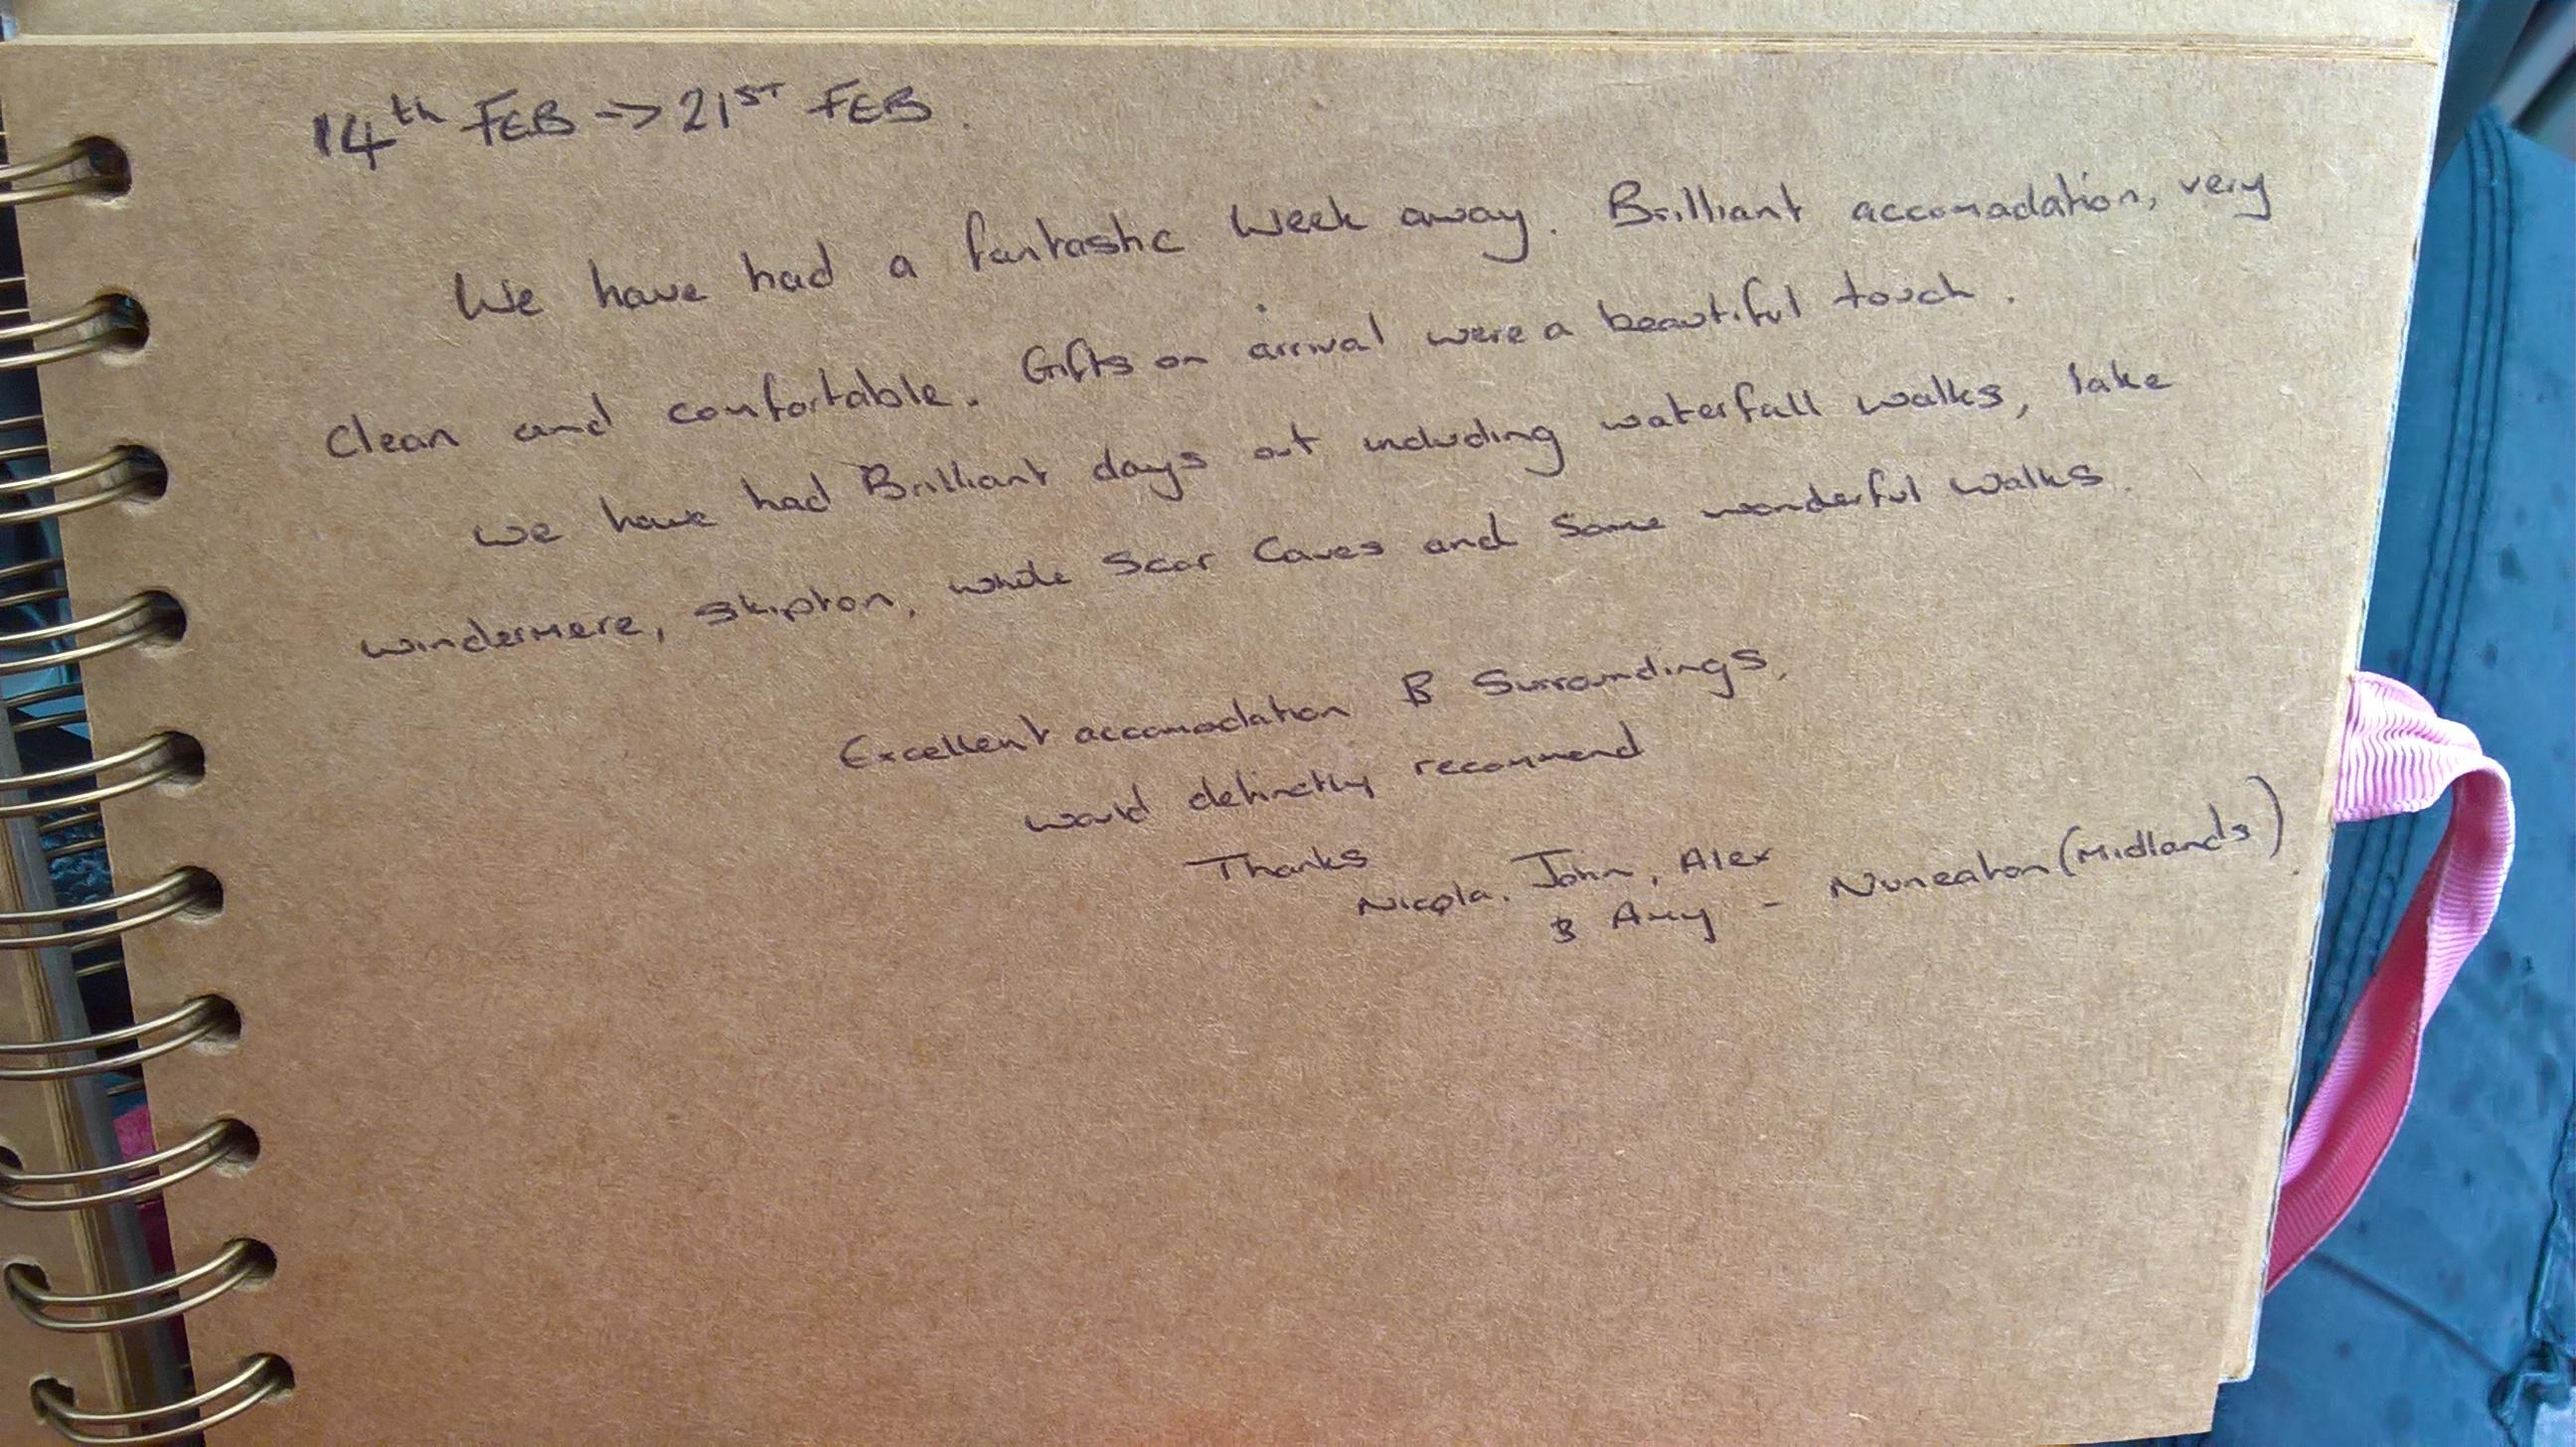 14th FEB -> 21ST FEB.
We have had a fantastic week away. Brilliant accomadation, very
Clean and comfortable. Gifts on arrival were a beautiful touch.
We have had Brilliant days out including waterfall walks, lake
windermere, Skipton, white Scar Caves and Some wonderful walks.
Excellent accomodation & Surroundings,
would definetly recommend
Thanks
Nicola, John, Alex
& Amy - Nuneaton (Midlands)